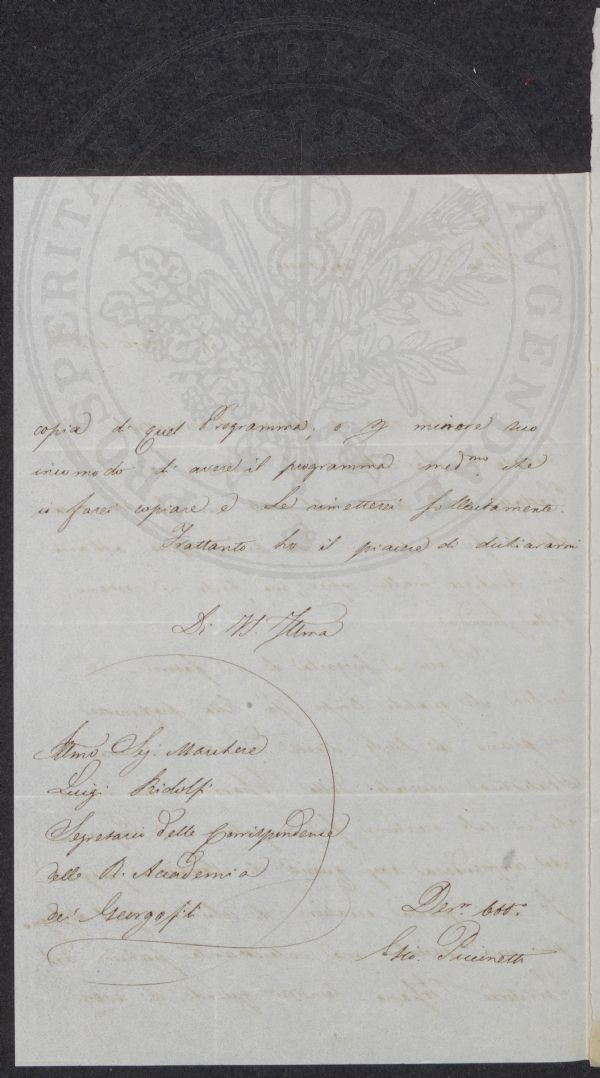 PROSPERITATI PUBLICAE AVGENDAE
copia di quel Programma, o p minore suo
incomodo di avere il programma med.mo che
io farei copiare e Le rimetterei sollecitamente.
Frattanto ho il piacere di dichiararmi
Di V. S. Illma
Illmo Sig. Marchese
Luigi Ridolfi
Segretario delle Corrispondenze
della R. Accademia
dei Georgofili
Dev.
Piccinetti